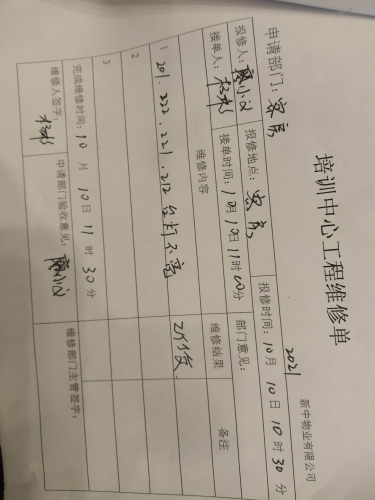 新中物业有限公司
培训中心工程维修单
2021
申请部门：客房
报修人：廖小义 报修地点：客房 报修时间：10月10日10时30分
接单人：杨彬 接单时间：10月10日11时00分 部门意见：
维修内容 维修结果 备注
1 201.222.221.212台灯不亮 已修复.
2
3
完成维修时间：10月10日11时30分
维修人签字：杨彬 申请部门验收意见：廖小义 维修部门主管签字：